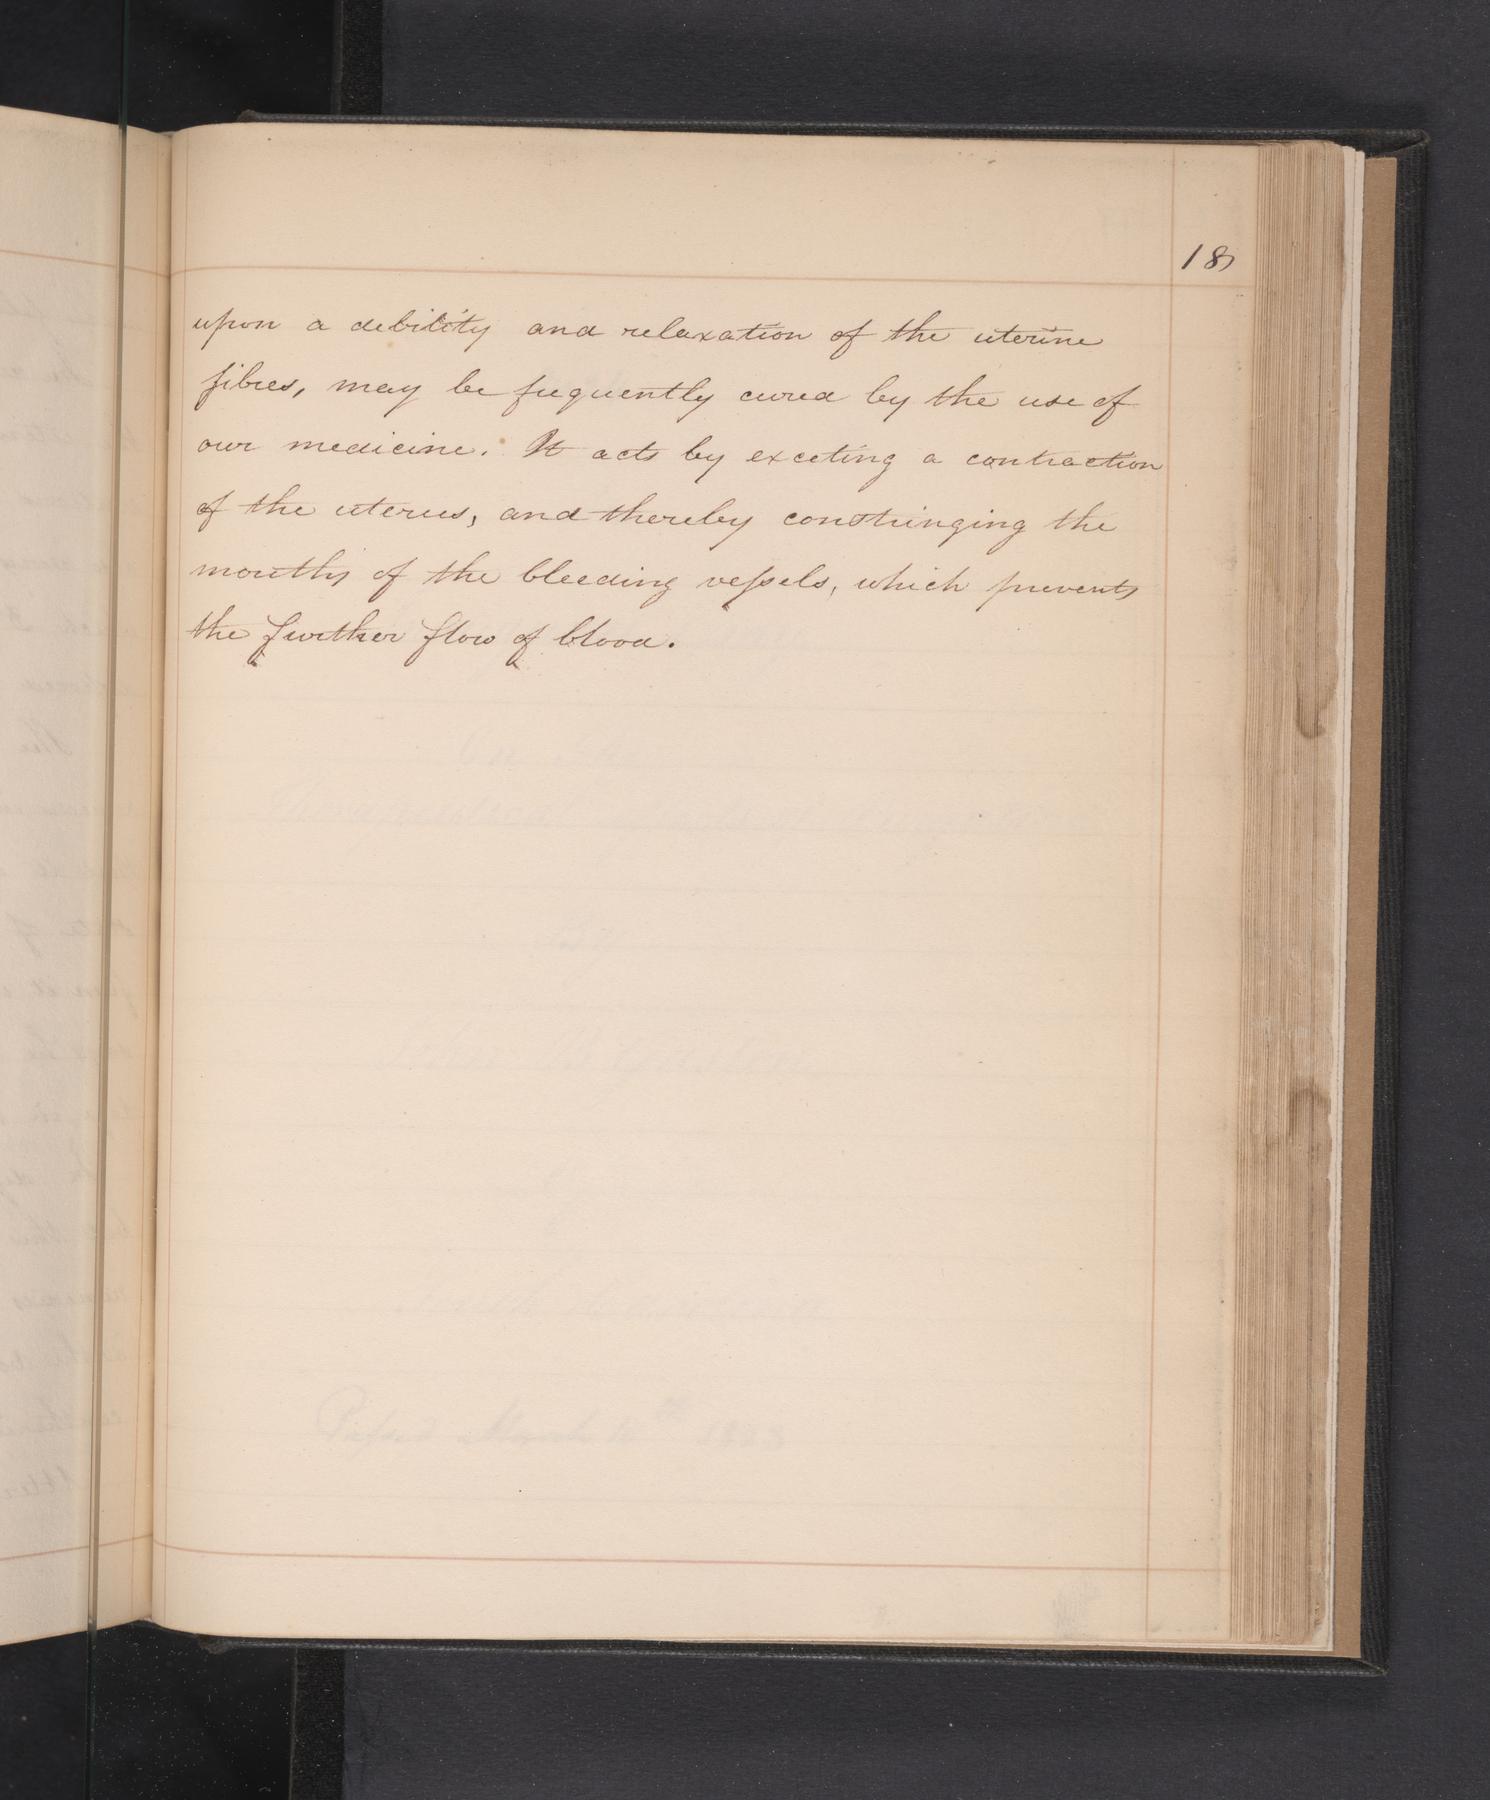 18
upon a debility and relaxation of the uterine
fibres, may be frequently cured by the use of
our medicine. It acts by exciting a contraction
of the uterus, and thereby constringing the
mouths of the bleeding vessels, which prevents
the further flow of blood.